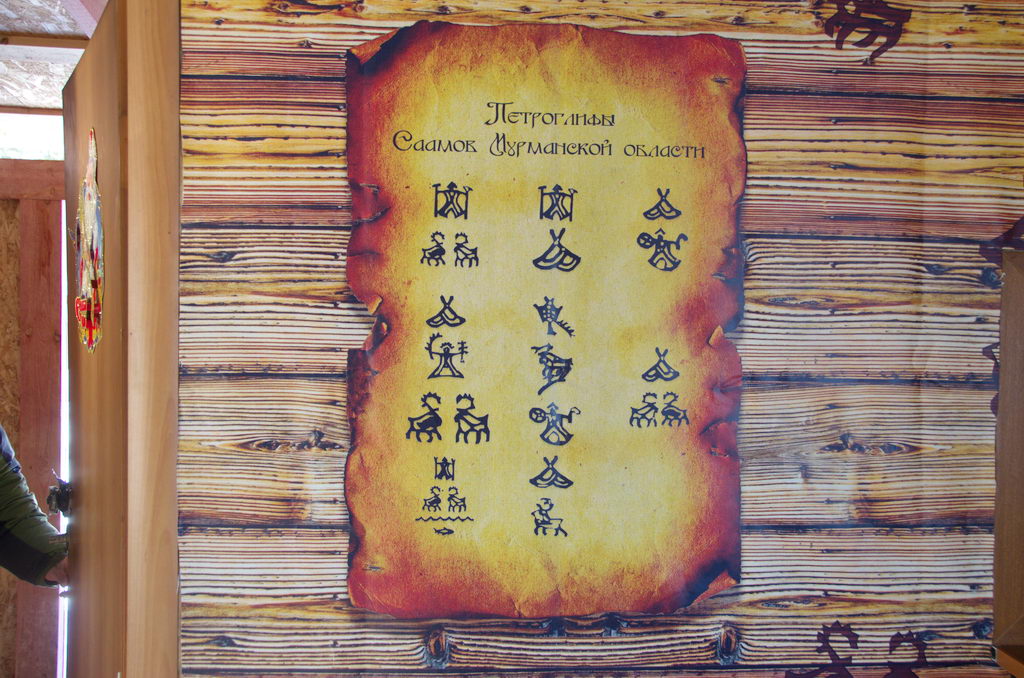 Петроглифы
Саамов Мурманской области